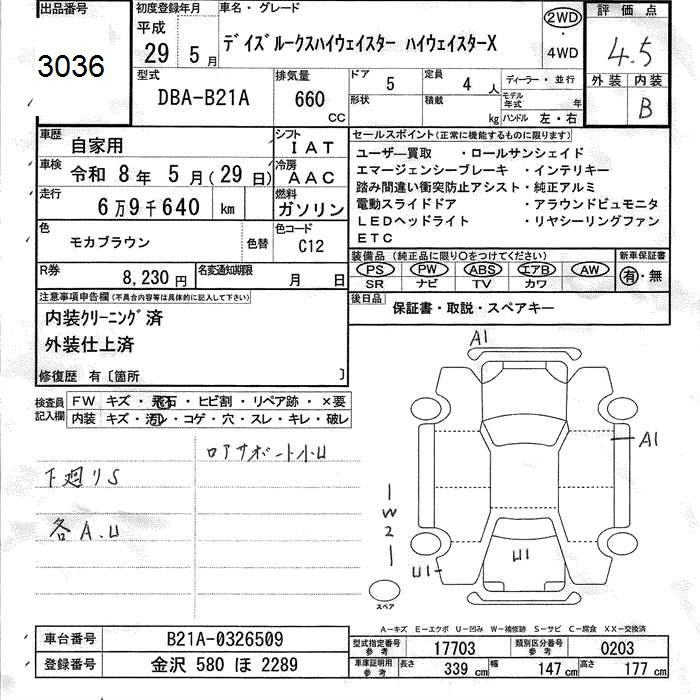 出品番号
3036
初度登録年月
平成
29 5月
車名・グレード
デイズルークスハイウェイスター ハイウェイスターX
2WD
・
4WD
評価点
4.5
外装 内装
B
型式
DBA-B21A
排気量
660
CC
ドア
5
定員
4人
形状
積載
kg
ディーラー・並行
モデル年式 年
ハンドル 左・右
車歴
自家用
シフト
IAT
車検
令和 8年 5月(29日)
冷房
AAC
走行
6万9千640 km
燃料
ガソリン
色
モカブラウン
色替
色コード
C12
R券
8,230円
名変通知期限
月 日
セールスポイント(正常に機能するものに限ります)
ユーザー買取 ・ロールサンシェイド
エマージェンシーブレーキ ・インテリキー
踏み間違い衝突防止アシスト・純正アルミ
電動スライドドア ・アラウンドビュモニタ
LEDヘッドライト ・リヤシーリングファン
ETC
装備品(純正品に限り○をつけてください)
PS PW ABS エアB AW
SR ナビ TV カワ
新車保証書
有・無
後日品
保証書・取説・スペアキー
注意事項申告欄(不具合内容等は具体的に記入して下さい)
内装クリーニング済
外装仕上済
修復歴 有〔箇所 〕
検査員
記入欄
FW キズ・飛石・ヒビ割・リペア跡・×要
内装 キズ・汚・コゲ・穴・スレ・キレ・破レ
下廻りS
各A.U
ロアサポート小U
A1
A1
W2
U1
U1
スペア
A-キズ E-エクボ U-凹み W-補修跡 S-サビ C-腐食 XX-交換済
車台番号
B21A-0326509
登録番号
金沢 580 ほ 2289
型式指定番号
参考
17703
類別区分番号
参考
0203
車庫証明用
参考
長さ 339cm 幅 147cm 高さ 177cm